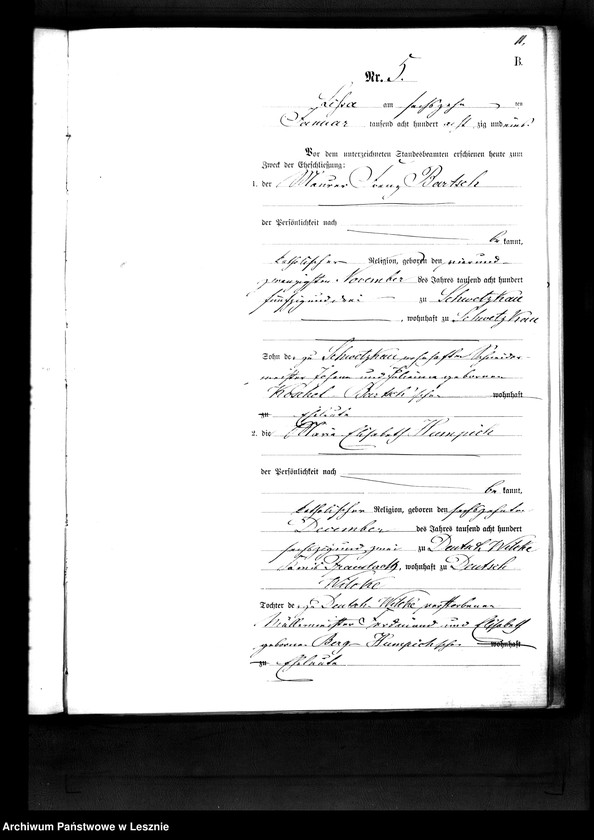 11.
B.
Nr. 5.
Lissa am sechszehn ten
Januar tausend acht hundert acht zig und eins
Vor dem unterzeichneten Standesbeamten erschienen heute zum
Zweck der Eheschließung:
1. der Maurer Franz Bartsch
der Persönlichkeit nach
be kannt,
katholischer Religion, geboren den vierund-
zwanzigsten November des Jahres tausend acht hundert
fünfzigunddrei zu Schwetzkau
, wohnhaft zu Schwetzkau
Sohn de s zu Schwetzkau wohnhaften Schneider-
meister Johann und Juliana geborenen
Bartsch'schen wohnhaft
zu Eheleute
2. die Maria Elisabeth Humpich
der Persönlichkeit nach
be kannt,
katholischer Religion, geboren den sechszehnten
December des Jahres tausend acht hundert
sechszigundzwei zu Deutsch Wilke
Kreis Fraustadt, wohnhaft zu Deutsch
Wilke
Tochter de s zu Deutsch Wilke verstorbenen
Müllermeister Ferdinand und Elisabeth
geborene Berg Humpich'schen wohnhaft
zu Eheleute
Archiwum Państwowe w Lesznie